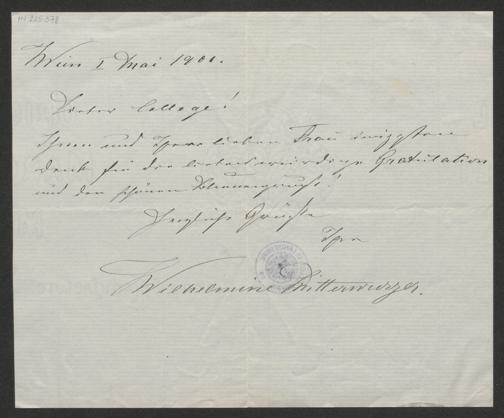 Wien 1 Mai 1900.
Werter College!
Ihnen und Ihrer lieben Frau innigsten
Dank für die liebenswürdige Gratulation
und den schönen Blumengruss!
Herzliche Grüsse
Ihre
Wilhelmine Mitterwurzer.